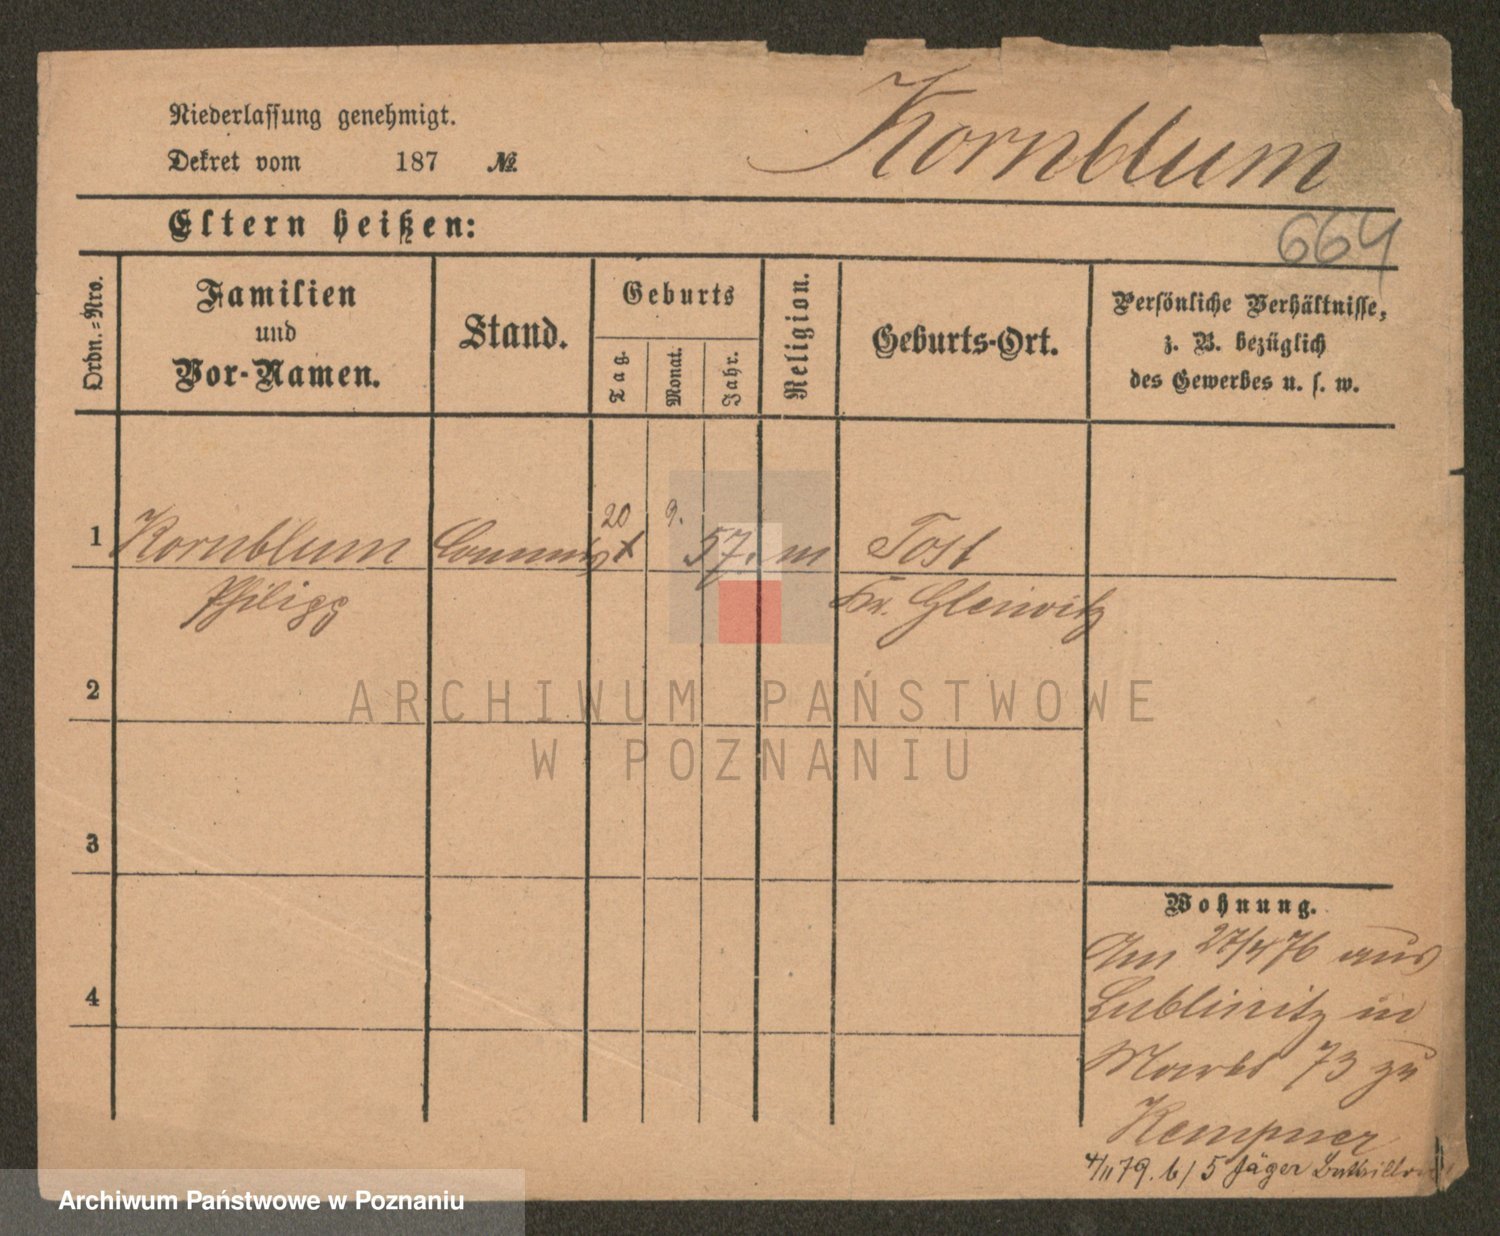 Niederlassung genehmigt.
Dekret vom 187 №
Kornblum
Eltern heißen:
664
Ordn.=Nro.
Familien
und
Vor-Namen.
Stand.
Geburts
Tag.
Monat.
Jahr.
Religion.
Geburts-Ort.
Persönliche Verhältnisse,
z. B. bezüglich
des Gewerbes u. s. w.
1
Kornblum
Commis
20
9.
57.
m
Tost
Philipp
Kr. Gleiwitz
2
ARCHIWUM PAŃSTWOWE
W POZNANIU
3
Wohnung.
Am 27/4 76 aus
Lublinitz in
Markt 73 zu
4
Kempner
4/11 79. b/ 5 Jäger
Archiwum Państwowe w Poznaniu